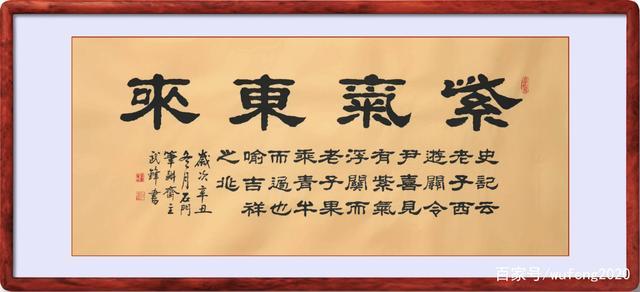 紫氣東來
史記云
老子西
遊關令
尹喜見
有紫氣
浮關而
老子果
乘青牛
而過也
喻吉祥
之兆
歲次辛丑
冬月石門
筆耕齋主
武鋒書
百家号/wufeng2020